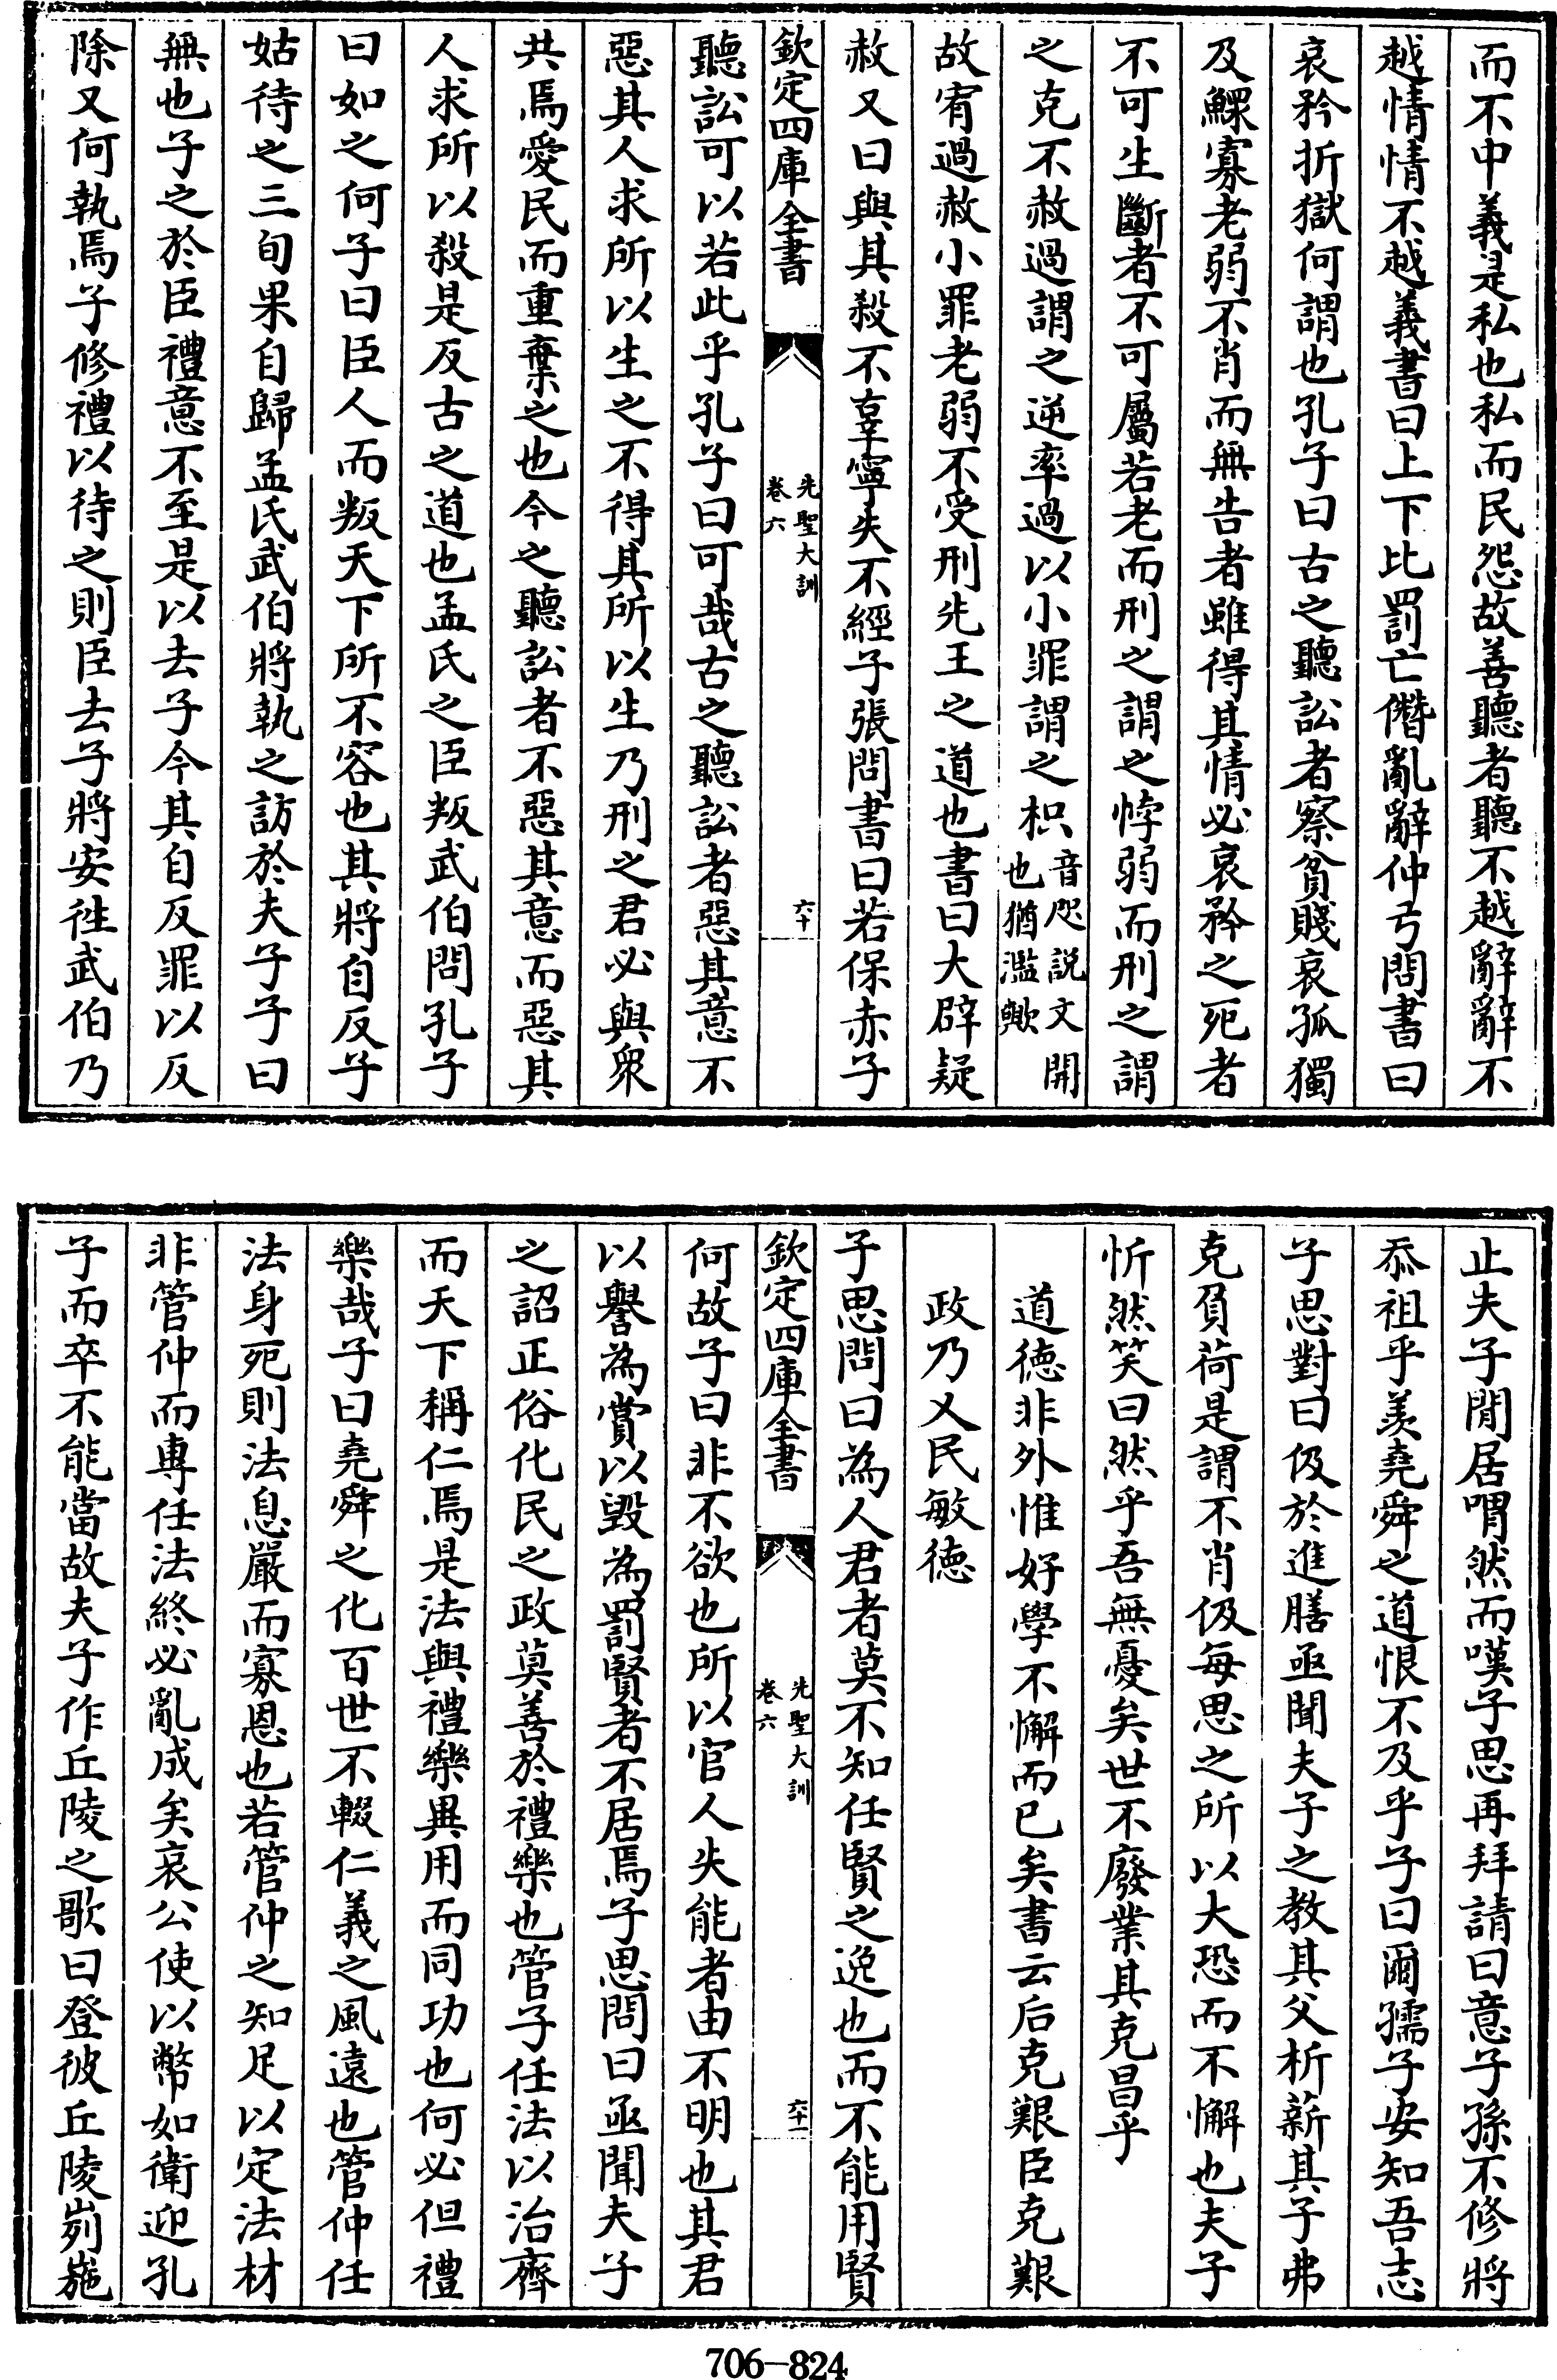 而不中義是私也私而民怨故善聽者聽不越辭辭不
越情情不越義書曰上下比罰亡僭亂辭仲弓問書曰
哀矜折獄何謂也孔子曰古之聽訟者察貧賤哀孤獨
及鰥寡老弱不肖而無告者雖得其情必哀矜之死者
不可生斷者不可屬若老而刑之謂之悖弱而刑之謂
之克不赦過謂之逆率過以小罪謂之枳音咫説文開也猶濫歟
故宥過赦小罪老弱不受刑先王之道也書曰大辟疑
赦又曰與其殺不辜寧失不經子張問書曰若保赤子
欽定四庫全書 先聖大訓 卷六 六十
聽訟可以若此乎孔子曰可哉古之聽訟者惡其意不
惡其人求所以生之不得其所以生乃刑之君必與衆
共焉愛民而重棄之也今之聽訟者不惡其意而惡其
人求所以殺是反古之道也孟氏之臣叛武伯問孔子
曰如之何子曰臣人而叛天下所不容也其將自反子
姑待之三旬果自歸孟氏武伯將執之訪於夫子子曰
無也子之於臣禮意不至是以去子今其自反罪以反
除又何執焉子修禮以待之則臣去子將安往武伯乃
止夫子閒居喟然而嘆子思再拜請曰意子孫不修將
忝祖乎羨堯舜之道恨不及乎子曰爾孺子安知吾志
子思對曰伋於進膳亟聞夫子之教其父析薪其子弗
克負荷是謂不肖伋每思之所以大恐而不懈也夫子
忻然笑曰然乎吾無憂矣世不廢業其克昌乎
道德非外惟好學不懈而已矣書云后克艱臣克艱
政乃乂民敏德
子思問曰為人君者莫不知任賢之逸也而不能用賢
欽定四庫全書 先聖大訓 卷六 六十一
何故子曰非不欲也所以官人失能者由不明也其君
以譽為賞以毀為罰賢者不居焉子思問曰亟聞夫子
之詔正俗化民之政莫善於禮樂也管子任法以治齊
而天下稱仁焉是法與禮樂異用而同功也何必但禮
樂哉子曰堯舜之化百世不輟仁義之風遠也管仲任
法身死則法息嚴而寡恩也若管仲之知足以定法材
非管仲而專任法終必亂成矣哀公使以幣如衛迎孔
子而卒不能當故夫子作丘陵之歌曰登彼丘陵峛崺
706-824